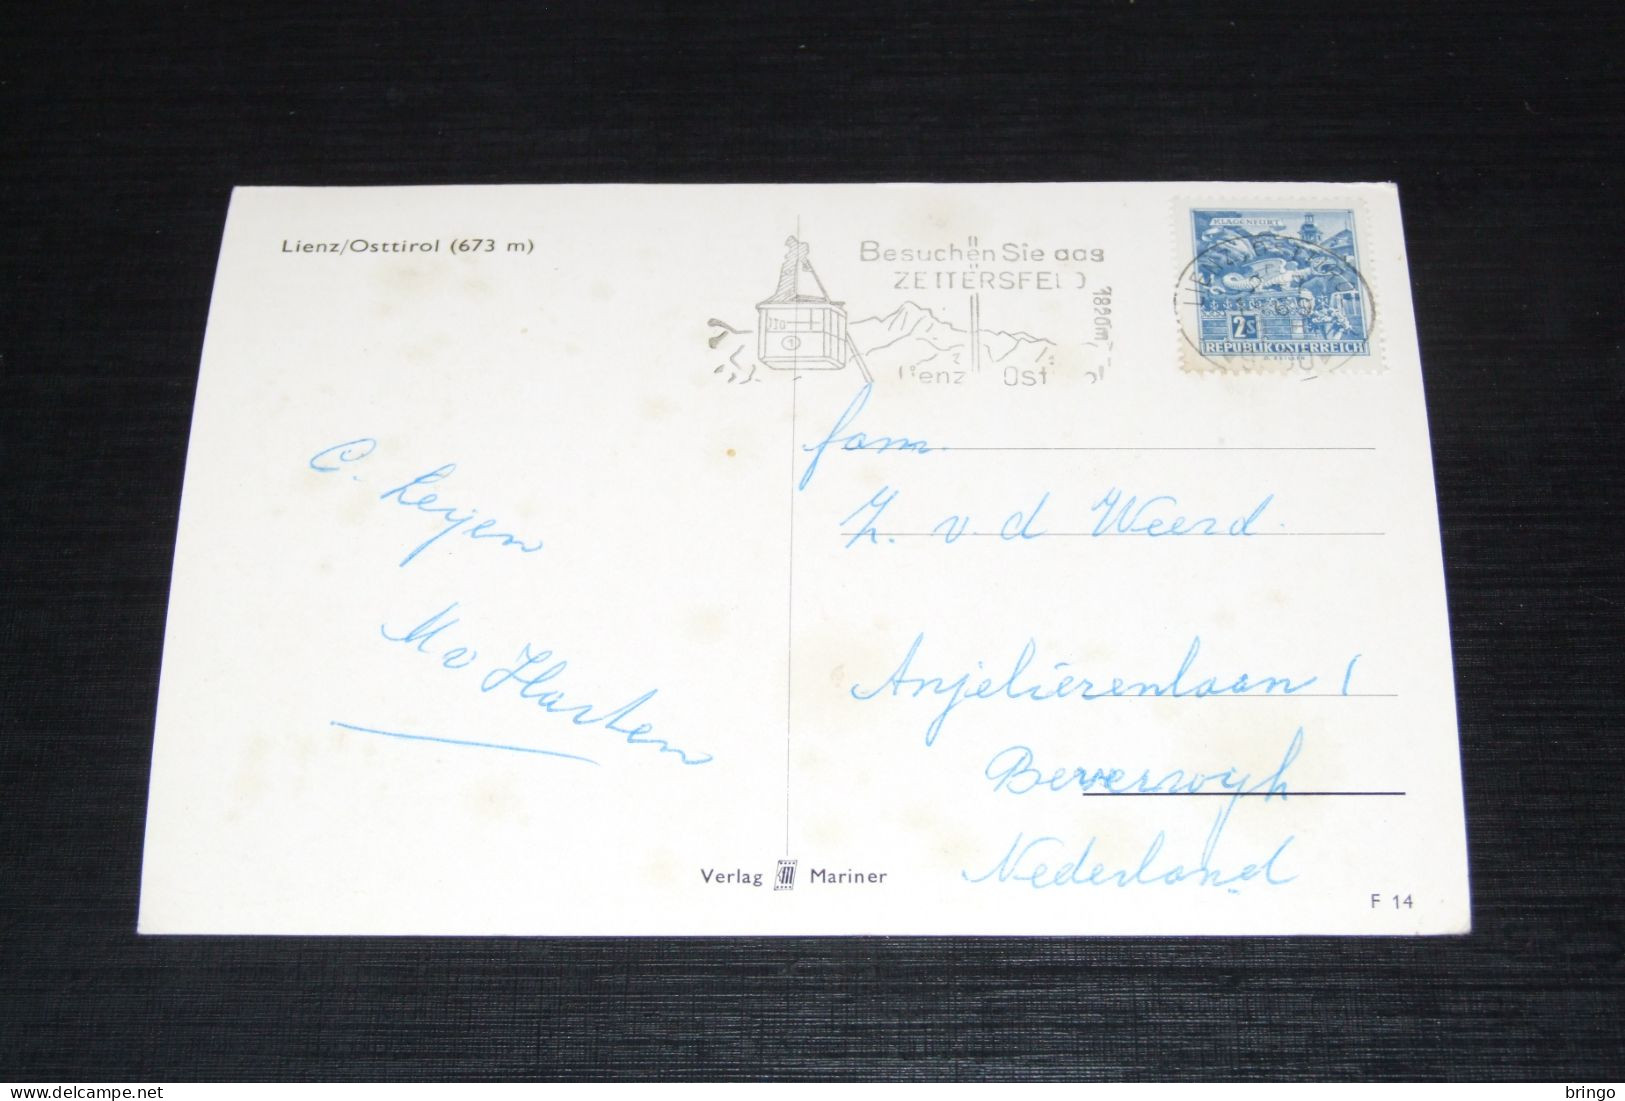 Lienz/Osttirol (673 m)
Besuchen Sie das
ZETTERSFELD
1820m
Lienz Ost
KLAGENFURT
2S
REPUBLIK ÖSTERREICH
LIENZ
C. Leyen
M v Harten
fam.
Z. v. d Weerd.
Anjeliérenlaan 1
Beverwyk
Nederland
Verlag Mariner
F 14
delcampe.net
bringo